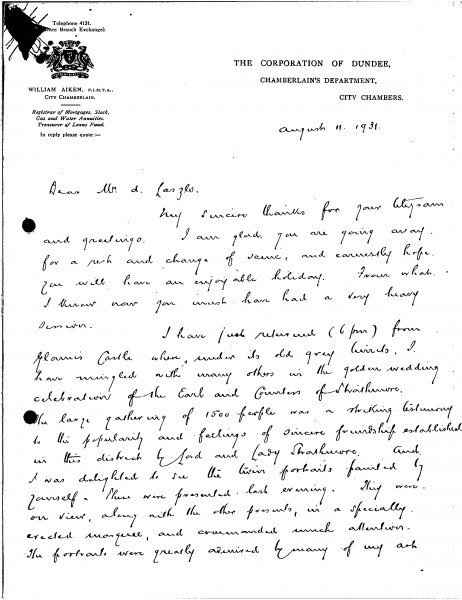 Telephone 4131.
Branch Exchange).
WILLIAM AIKEN, F.I.M.T.A.,
CITY CHAMBERLAIN.
Registrar of Mortgages, Stock,
Gas and Water Annuities.
Treasurer of Loans Fund.
In reply please quote:—
THE CORPORATION OF DUNDEE,
CHAMBERLAIN'S DEPARTMENT,
CITY CHAMBERS.
August 11. 1931.
Dear Mr. de Laszlo.
My sincere thanks for your telegram
and greetings. I am glad you are going away
for a rest and change of scene, and earnestly hope
you will have an enjoyable holiday. From what
I know now you must have had a very heavy
session.
I have just returned (6 pm) from
Glamis Castle where, under its old grey turrets, I
have mingled with many others in the golden wedding
celebration of the Earl and Countess of Strathmore.
The large gathering of 1500 people was a striking testimony
to the popularity and feelings of sincere friendship established
in this district by Lord and Lady Strathmore. And
I was delighted to see the twin portraits painted by
yourself. These were presented last evening. They were
on view, along with the other presents, in a specially
erected marquee, and commanded much attention.
The portraits were greatly admired by many of my art